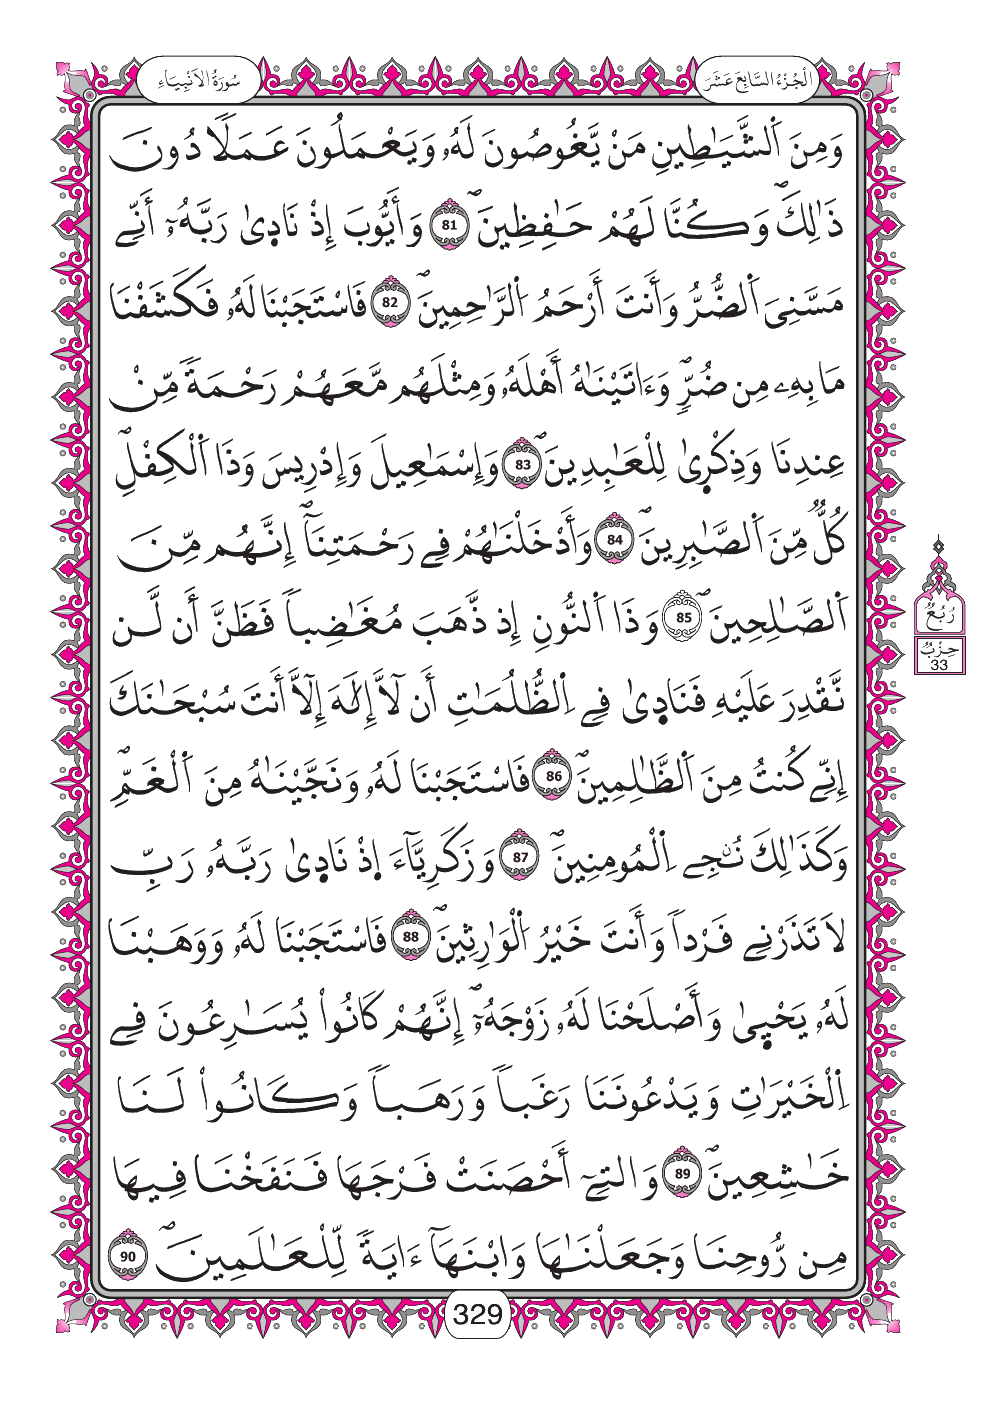 سُورَةُ الْأَنْبِيَاءِ
الْجُزْءُ السَّابِعَ عَشَرَ
وَمِنَ اَ۬لشَّيَٰطِينِ مَنْ يَّغُوصُونَ لَهُۥ وَيَعْمَلُونَ عَمَلاٗ دُونَ
ذَٰلِكَۖ وَكُنَّا لَهُمْ حَٰفِظِينَۖ 81 وَأَيُّوبَ إِذْ نَادٜىٰ رَبَّهُۥٓ أَنِّے
مَسَّنِيَ اَ۬لضُّرُّ وَأَنتَ أَرْحَمُ اُ۬لرَّٰحِمِينَۖ 82 فَاسْتَجَبْنَا لَهُۥ فَكَشَفْنَا
مَا بِهِۦ مِن ضُرّٖۖ وَءَاتَيْنَٰهُ أَهْلَهُۥ وَمِثْلَهُم مَّعَهُمْ رَحْمَةٗ مِّنْ
عِندِنَا وَذِكْر۪ىٰ لِلْعَٰبِدِينَۖ 83 وَإِسْمَٰعِيلَ وَإِدْرِيسَ وَذَا اَ۬لْكِفْلِۖ
كُلّٞ مِّنَ اَ۬لصَّٰبِرِينَۖ 84 وَأَدْخَلْنَٰهُمْ فِے رَحْمَتِنَآۖ إِنَّهُم مِّنَ
اَ۬لصَّٰلِحِينَۖ 85 وَذَا اَ۬لنُّونِ إِذ ذَّهَبَ مُغَٰضِباٗ فَظَنَّ أَن لَّن
نَّقْدِرَ عَلَيْهِ فَنَادٜىٰ فِے اِ۬لظُّلُمَٰتِ أَن لَّآ إِلَٰهَ إِلَّآ أَنتَ سُبْحَٰنَكَ
إِنِّے كُنتُ مِنَ اَ۬لظَّٰلِمِينَۖ 86 فَاسْتَجَبْنَا لَهُۥ وَنَجَّيْنَٰهُ مِنَ اَ۬لْغَمِّۖ
وَكَذَٰلِكَ نُۨجِے اِ۬لْمُومِنِينَۖ 87 وَزَكَرِيَّآءَ اِ۪ذْ نَادٜىٰ رَبَّهُۥ رَبِّ
لَا تَذَرْنِے فَرْداٗ وَأَنتَ خَيْرُ اُ۬لْوَٰرِثِينَۖ 88 فَاسْتَجَبْنَا لَهُۥ وَوَهَبْنَا
لَهُۥ يَحْي۪ىٰ وَأَصْلَحْنَا لَهُۥ زَوْجَهُۥٓۖ إِنَّهُمْ كَانُواْ يُسَٰرِعُونَ فِے
اِ۬لْخَيْرَٰتِ وَيَدْعُونَنَا رَغَباٗ وَرَهَباٗ وَكَانُواْ لَنَا
خَٰشِعِينَۖ 89 وَالتِےٓ أَحْصَنَتْ فَرْجَهَا فَنَفَخْنَا فِيهَا
مِن رُّوحِنَا وَجَعَلْنَٰهَا وَابْنَهَآ ءَايَةٗ لِّلْعَٰلَمِينَۖ 90
رُبُعُ
حِزْبُ
33
329